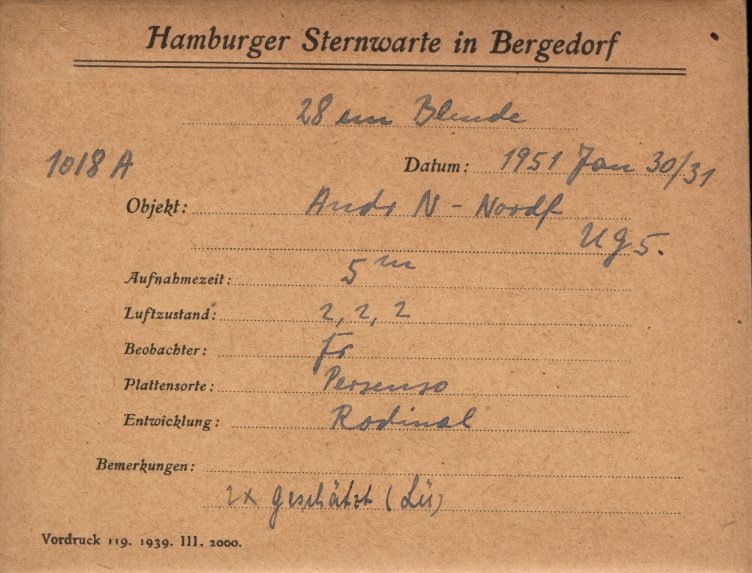 Hamburger Sternwarte in Bergedorf
28 cm Blende
1018 A
Datum: 1951 Jan 30/31
Objekt: Andr N - Nordf
UG5.
Aufnahmezeit: 5 m
Luftzustand: 2, 2, 2
Beobachter: Fr
Plattensorte: Persenso
Entwicklung: Rodinal
Bemerkungen:
2x geschätzt (Lü)
Vordruck 119. 1939. III. 2000.